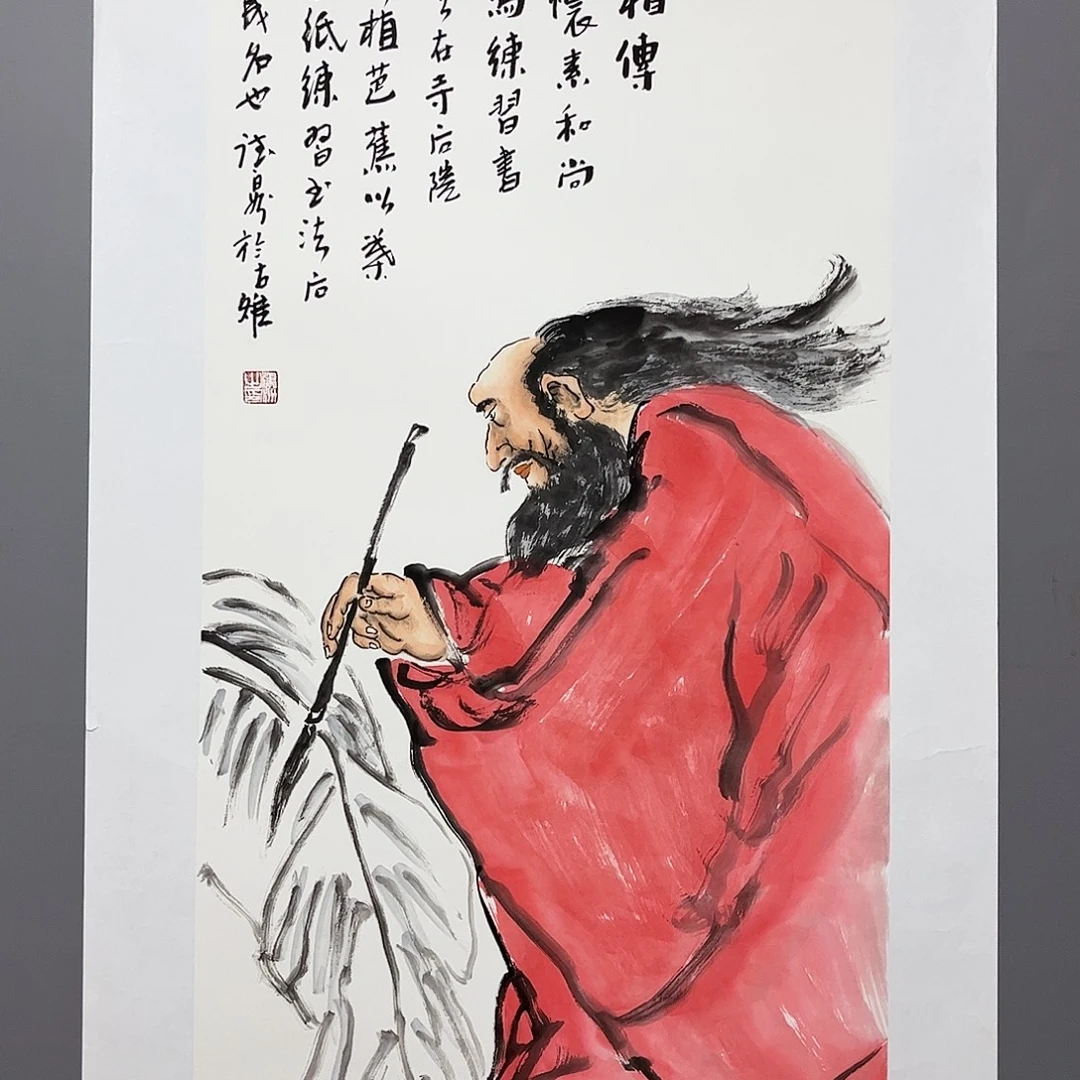 相傳
懷素和尚
為練習書
在寺后院
植芭蕉以葉
紙練習书法后
成名也 於古